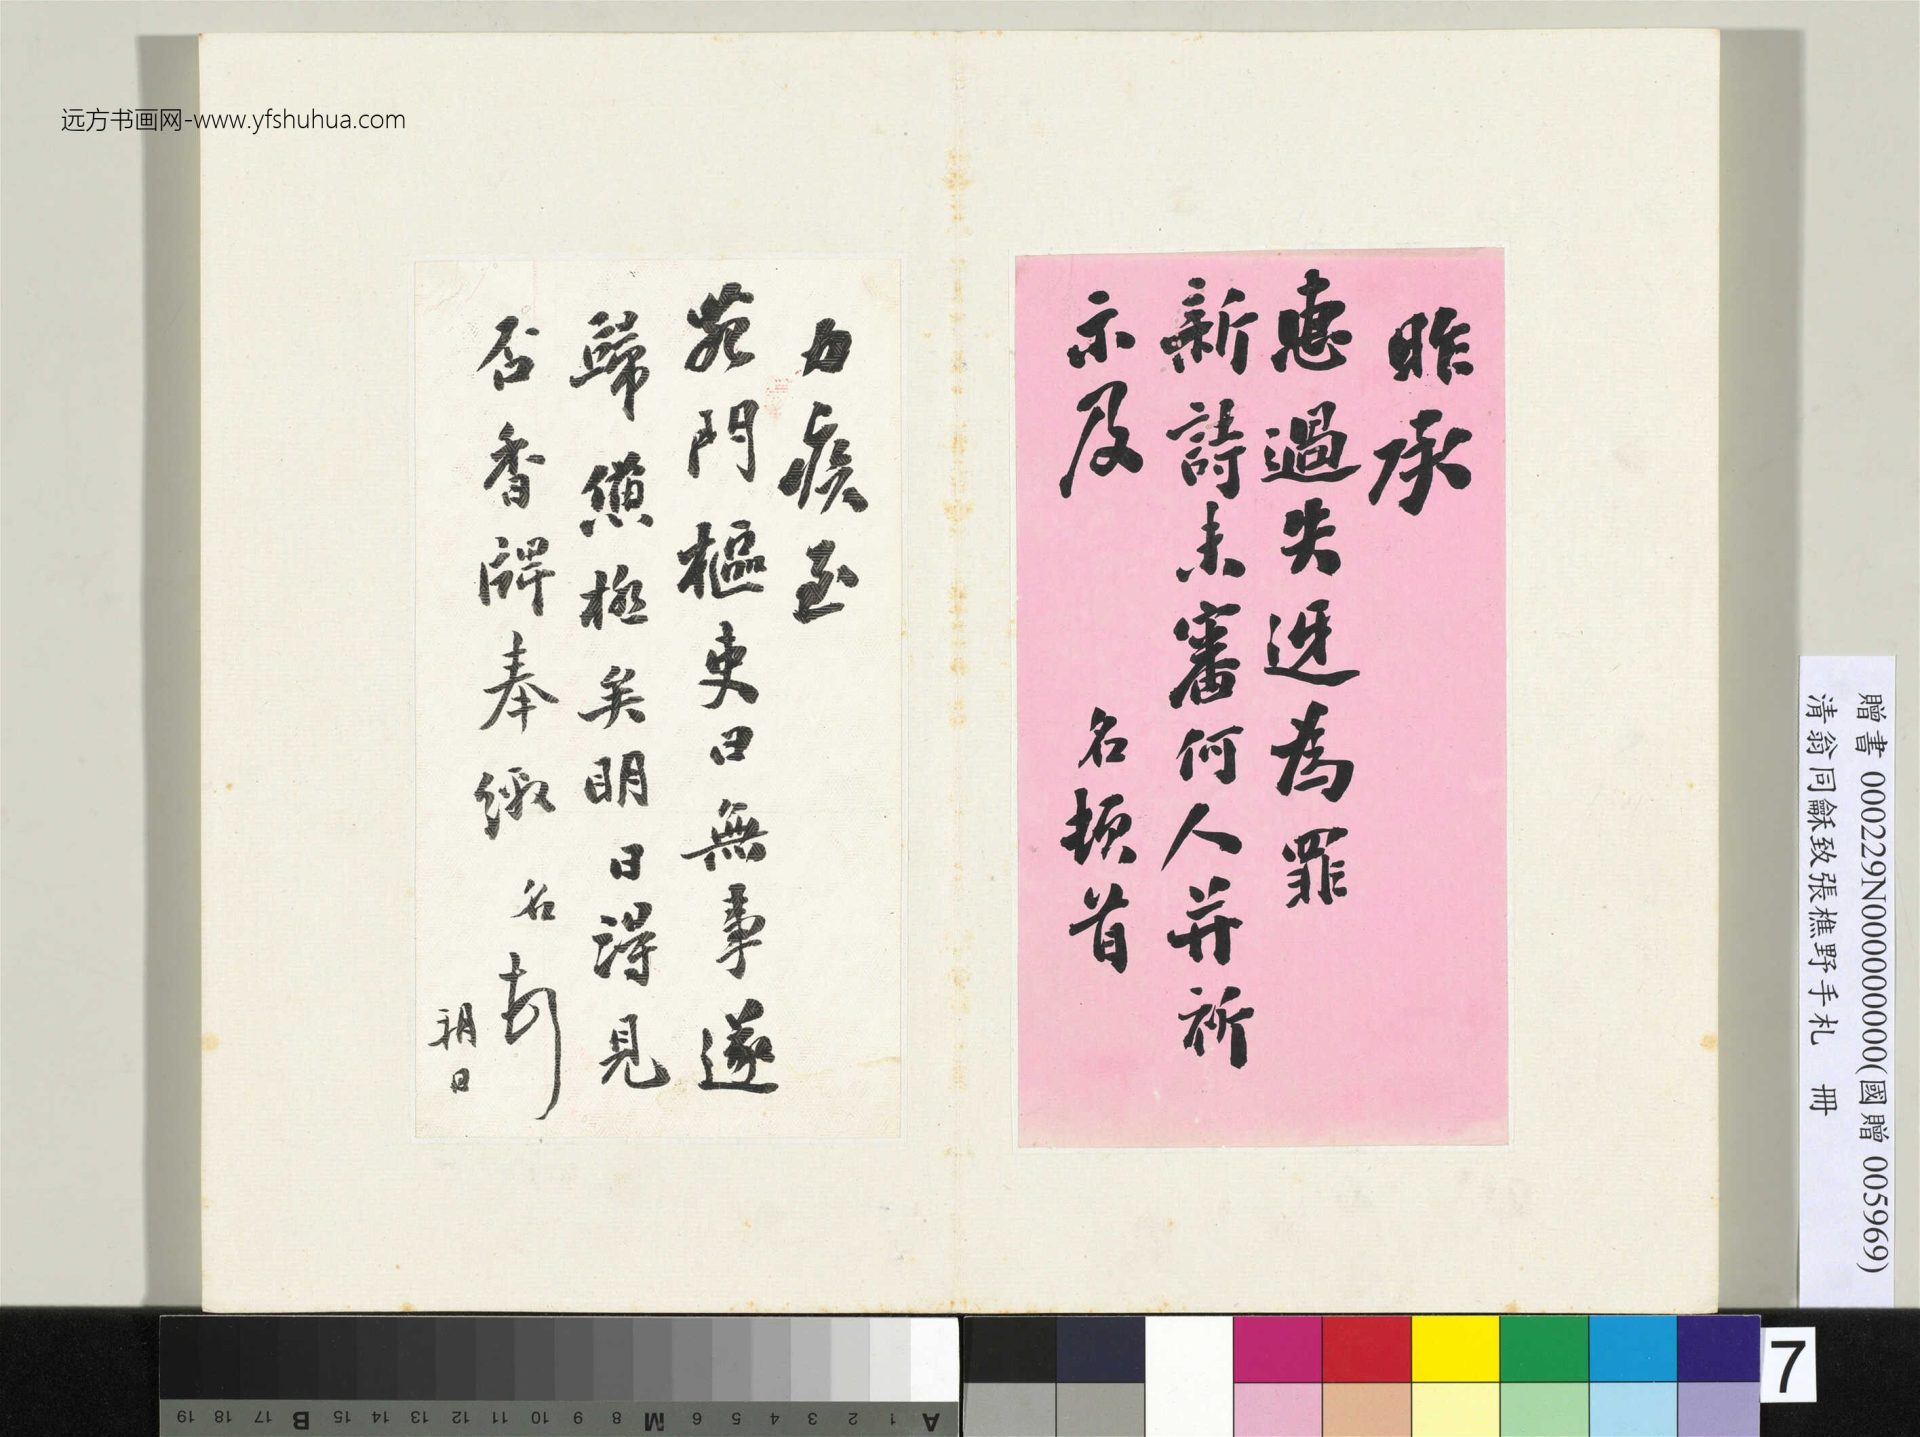 远方书画网-www.yfshuhua.com
昨承
惠過失迓為罪
新詩未審何人并祈
示及
名頓首
力疾至
苑門樞吏曰無事遂
歸憊極矣明日得見
否香牌奉繳
名頓首
朔日
贈書 000229N000000000(國贈 005969)
清翁同龢致張樵野手札 冊
7
A 1 2 3 4 5 6 M 8 9 10 11 12 13 14 15 B 17 18 19